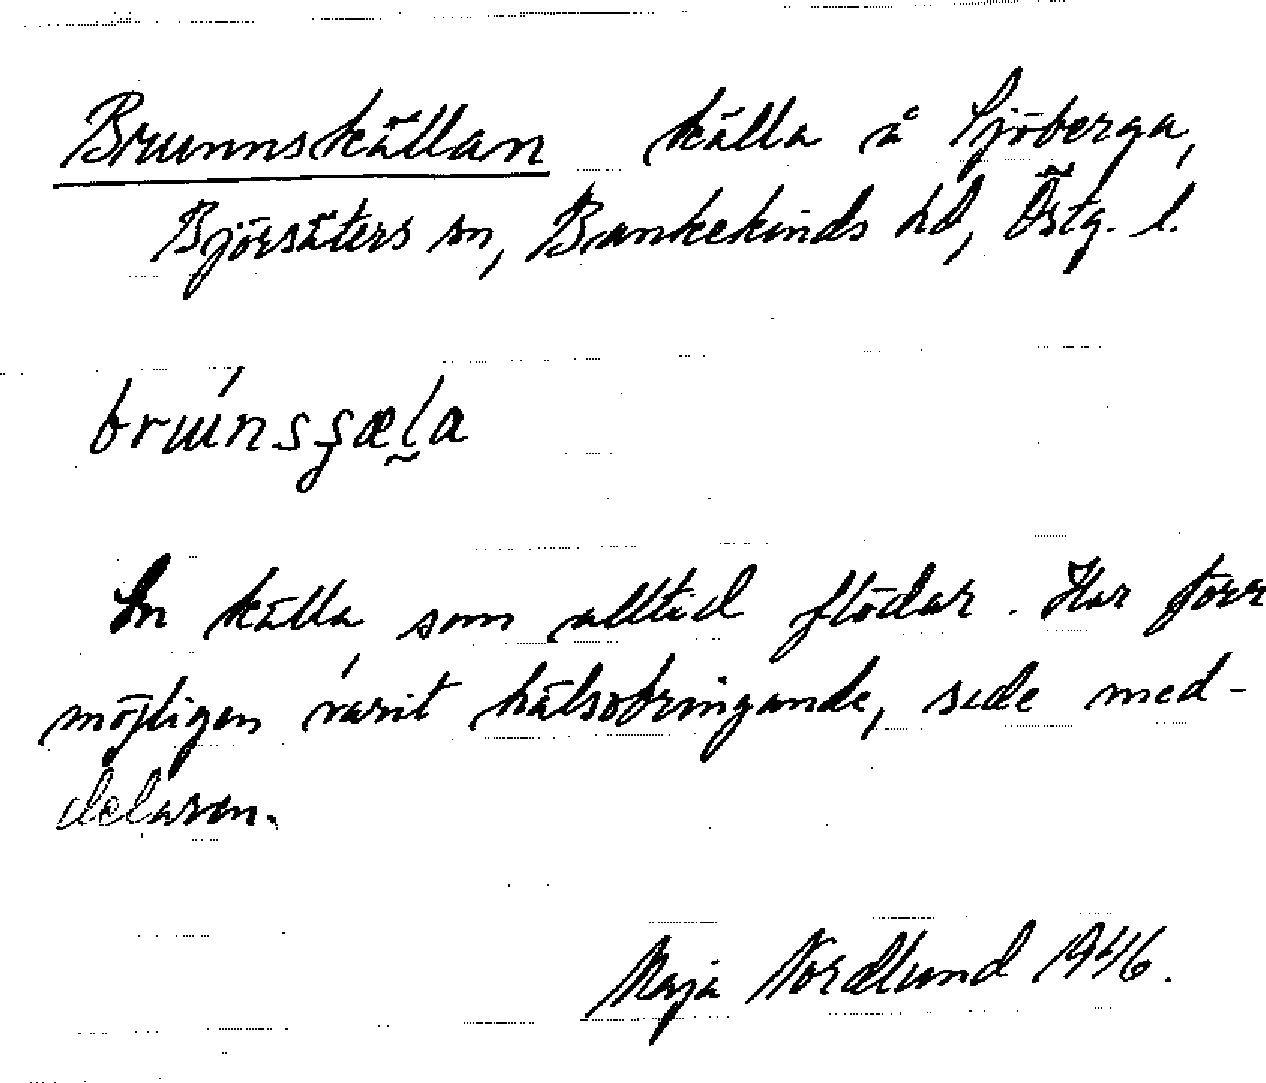 Brunnskällan källa å Sjöberga,
Björsäters sn, Bankekinds hd, Östg. l.
En källa som alltid flödar. Har förr
möjligen varit hälsobringande, sade med-
delaren.
Maja Nordlund 1946.